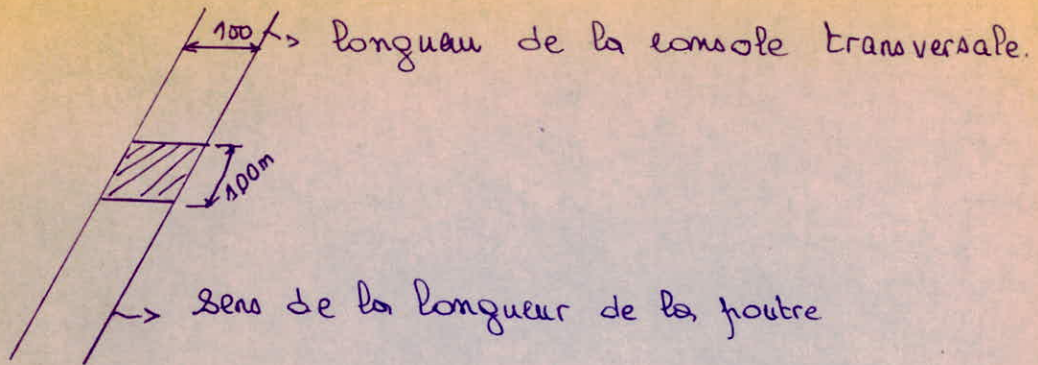 100
longueur de la console transversale.
1,00m
Sens de la longueur de la poutre